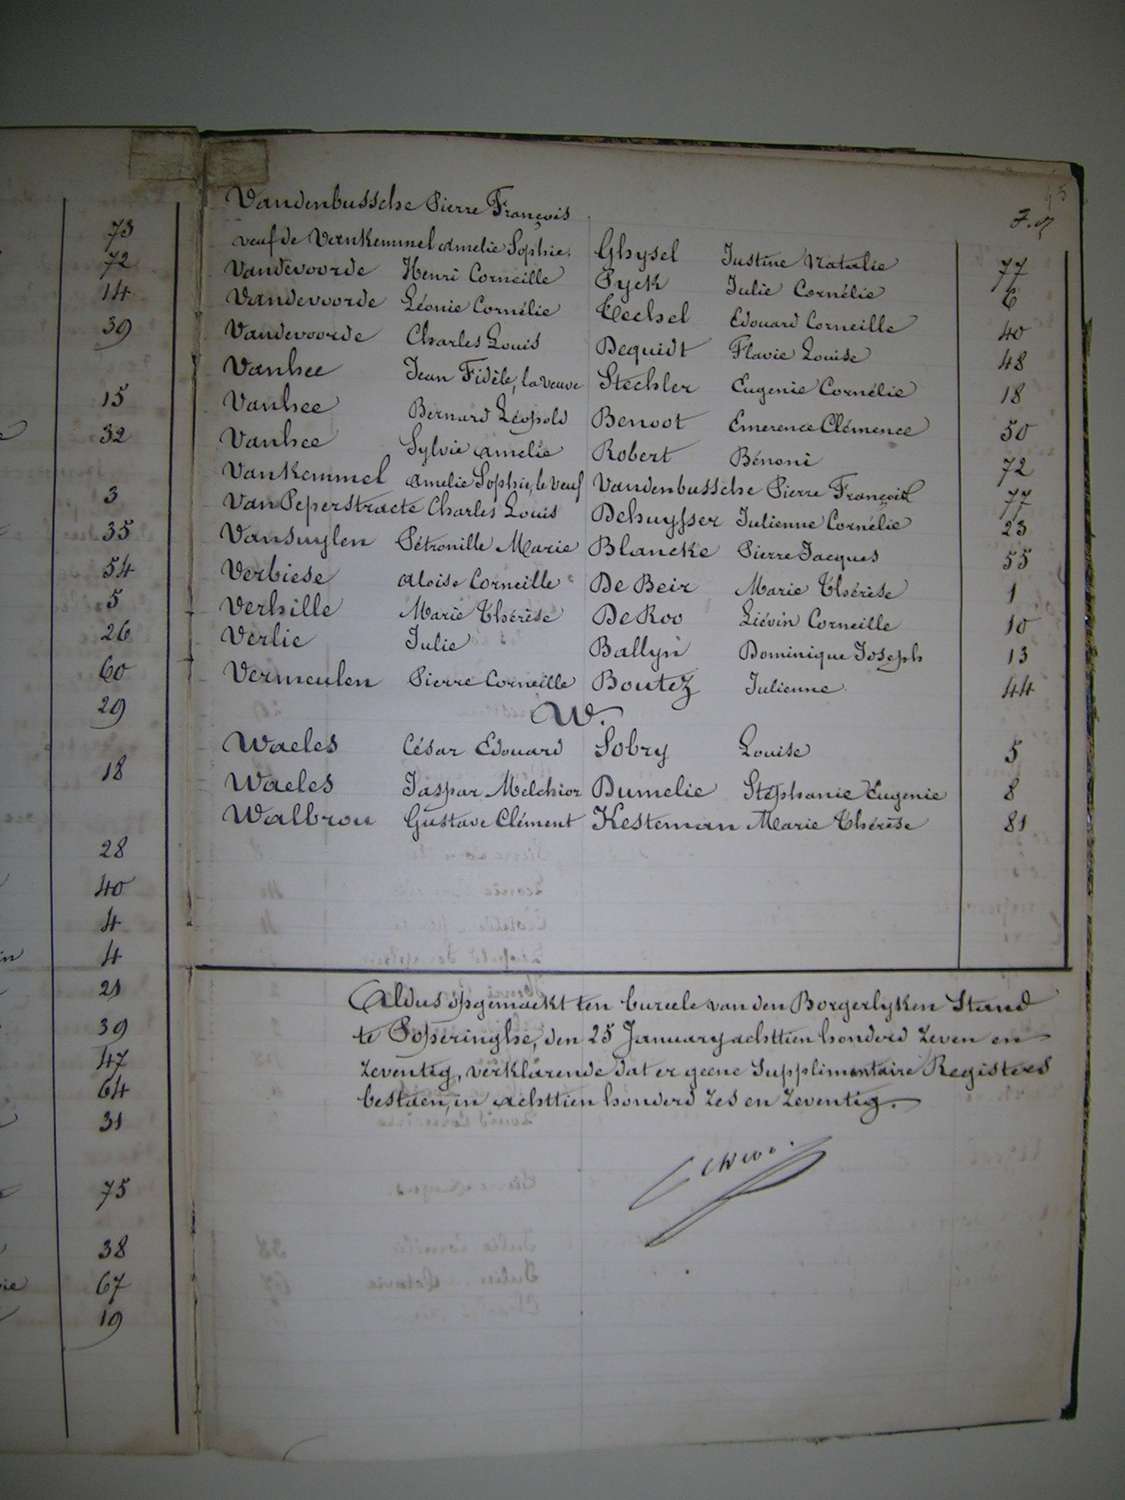 73
72
14
39
15
32
3
35
54
5
26
60
29
18
28
40
4
4
21
39
47
64
31
75
38
67
19
Vandenbussche Pierre François
veuf de Vankemmel Amelie Sophie, Ghysel Justine Natalie 77
Vandevoorde Henri Corneille Pyck Julie Cornélie 6
Vandevoorde Léonie Cornélie Techel Edouard Corneille 40
Vandevoorde Charles Louis Dequidt Flavie Louise 48
Vanhee Jean Fidèle, la veuve Stechler Eugenie Cornélie 18
Vanhee Bernard Léopold Benoot Emerence Clémence 50
Vanhee Sylvie Amelie Robert Bénoni 72
Vankemmel Amelie Sophie, le veuf Vandenbussche Pierre François 77
Van Peperstraete Charles Louis Dehuysser Julienne Cornélie 23
Vansuylen Pétronille Marie Blancke Pierre Jacques 55
Verbiese Aloise Corneille De Beir Marie Thérèse 1
Verhille Marie Thérèse De Roo Liévin Corneille 10
Verlie Julie Ballyn Dominique Joseph 13
Vermeulen Pierre Corneille Boutez Julienne 44
W.
Waeles César Edouard Sobry Louise 5
Waeles Jaspar Melchior Dumelie Stéphanie Eugenie 8
Walbrou Gustave Clément Kesteman Marie Thérèse 81
Aldus opgemaekt ten bureele van den Borgerlyken Stand
te Poperinghe, den 25 January achttien honderd zeven en
zeventig, verklarende dat er geene Supplimentaire Registers
bestaen, in achttien honderd zes en zeventig.